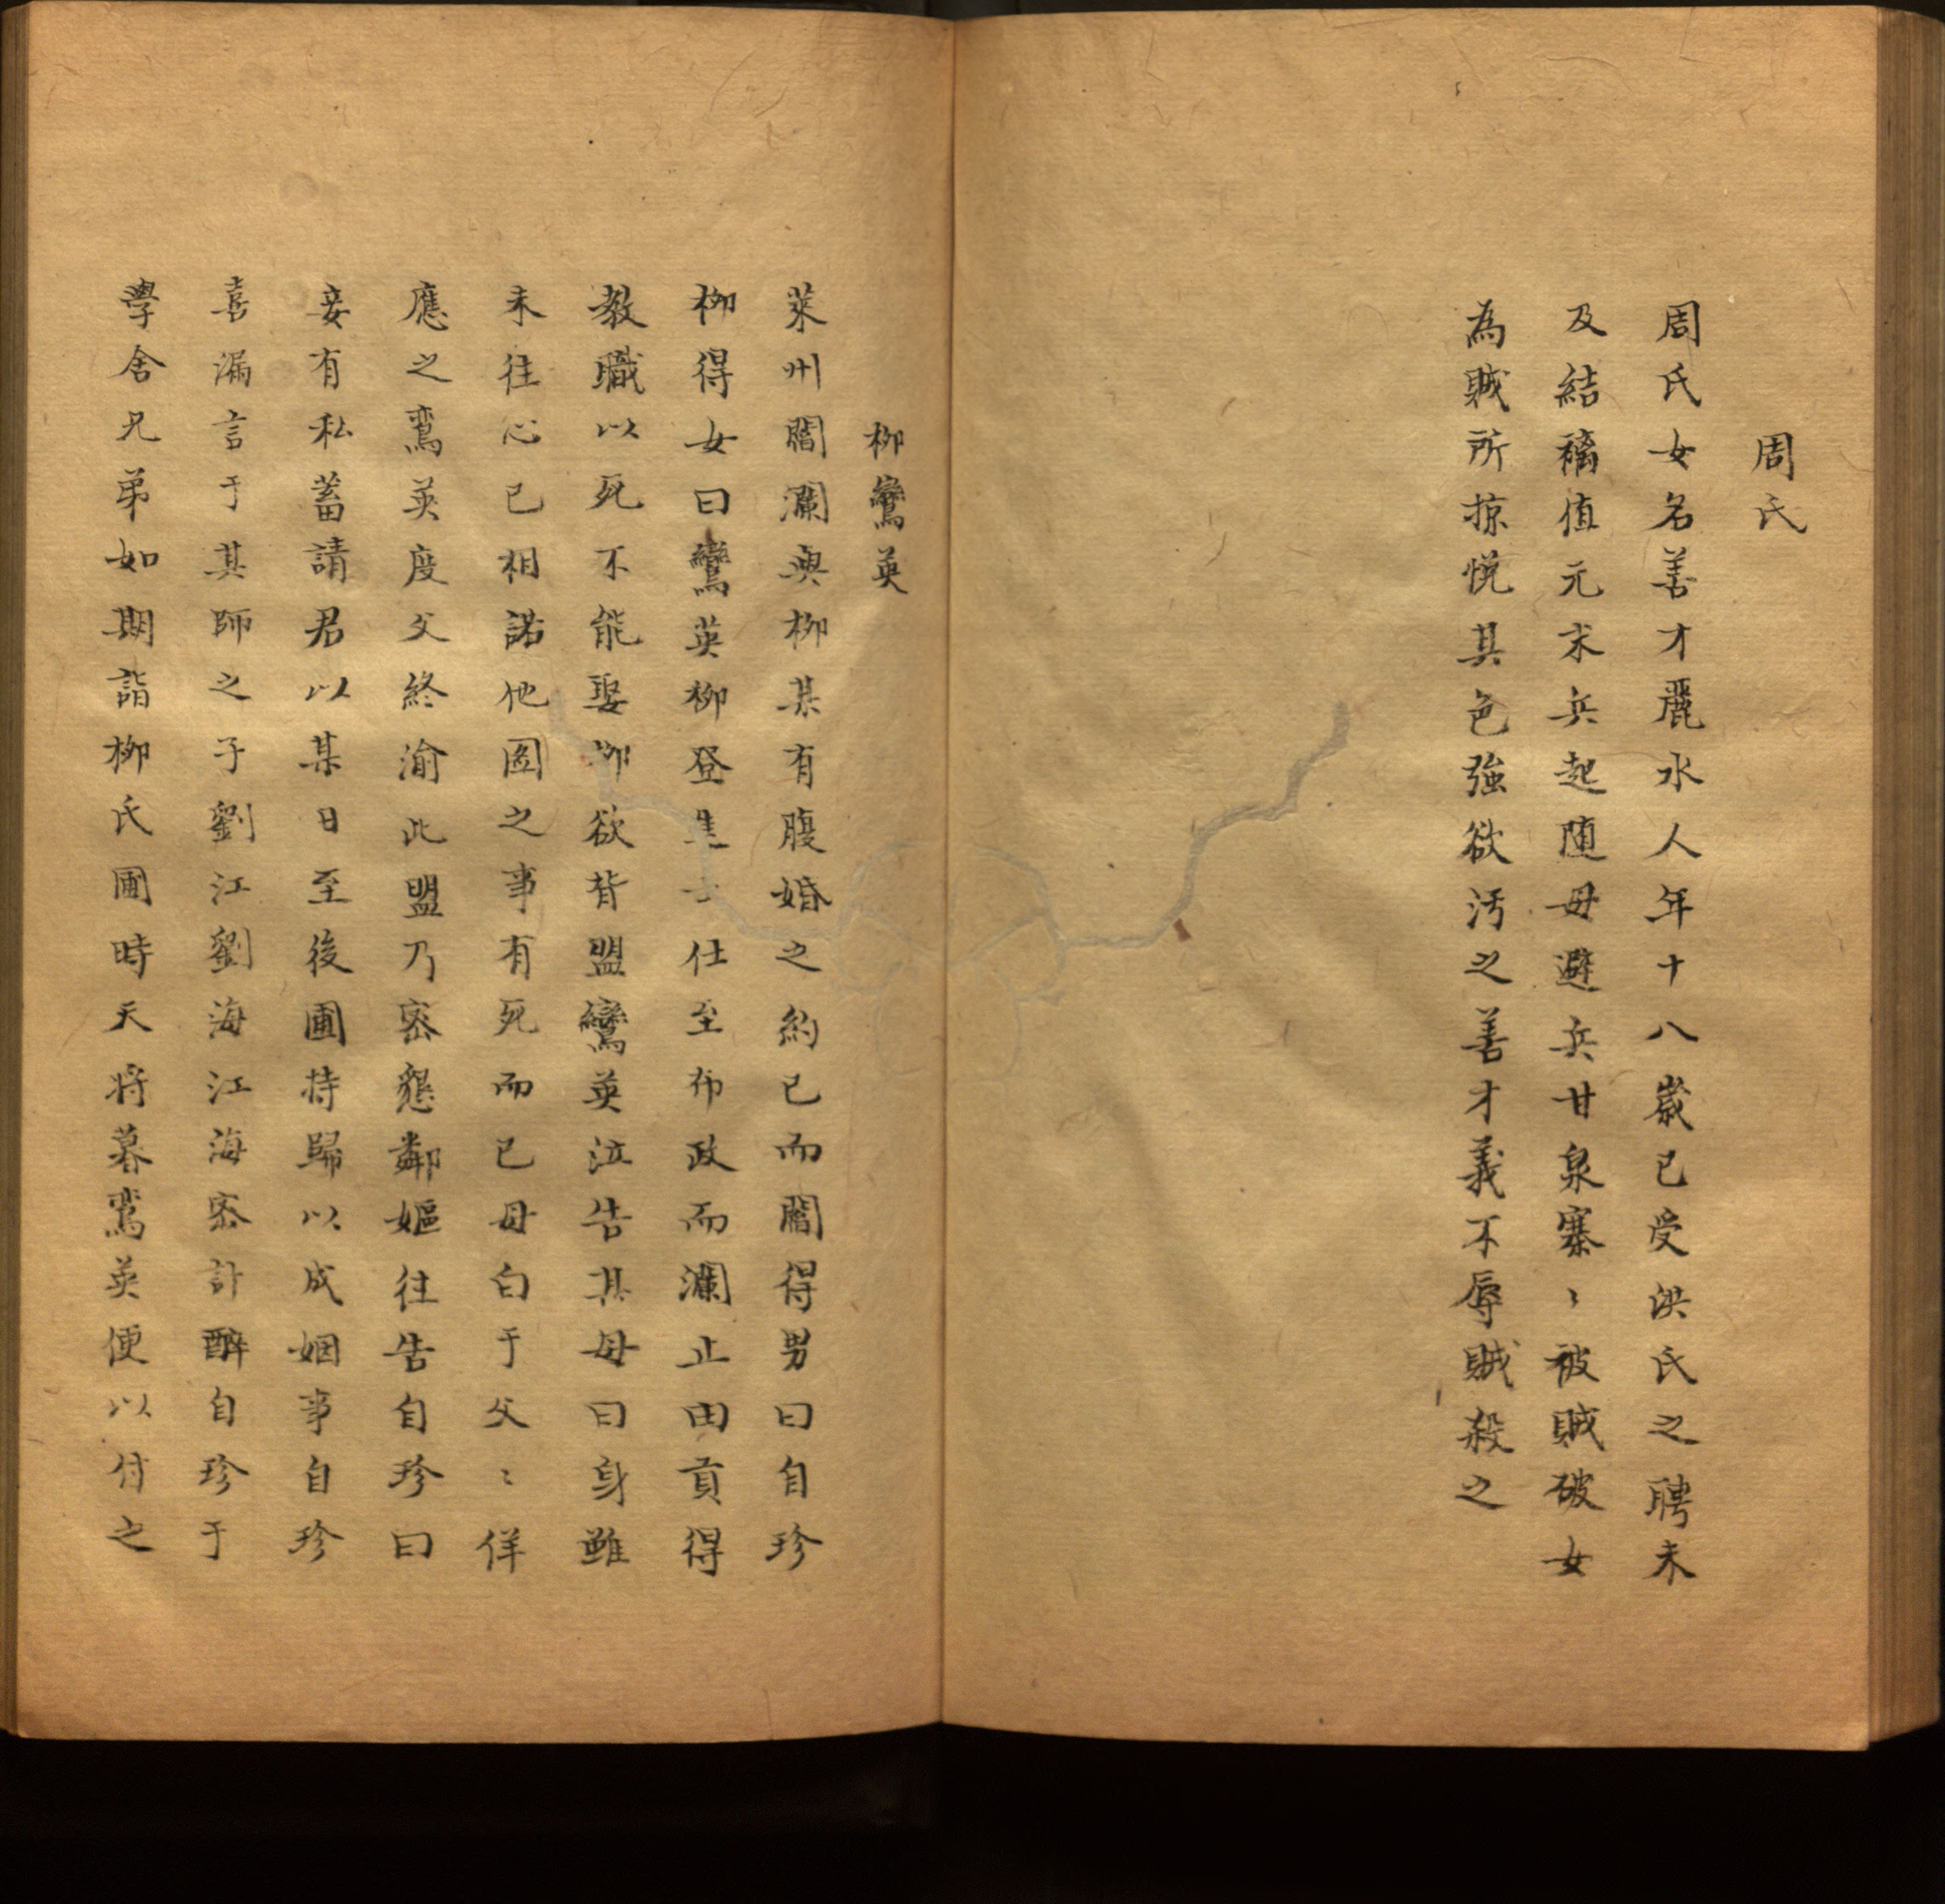 周氏
周氏女名善才麗水人年十八歲已受洪氏之聘未
及結褵值元末兵起随母避兵甘泉寨〻被賊破女
為賊所掠悅其色強欲汚之善才義不辱賊殺之
柳鸞英
萊州閻瀾與柳某有腹婚之約已而閻得男曰自珍
柳得女曰鸞英柳登進士仕至布政而瀾止由貢得
教職以死不能娶柳欲背盟鸞英泣告其母曰身雖
未往心已相諾他圖之事有死而已母白于父〻佯
應之鸞英度父終渝此盟乃密懇鄰嫗往告自珍曰
妾有私蓄請君以某日至後圃持歸以成姻事自珍
喜漏言于其師之子劉江劉海江海密計醉自珍于
學舍兄弟如期詣柳氏圃時天將暮鸞英便以付之